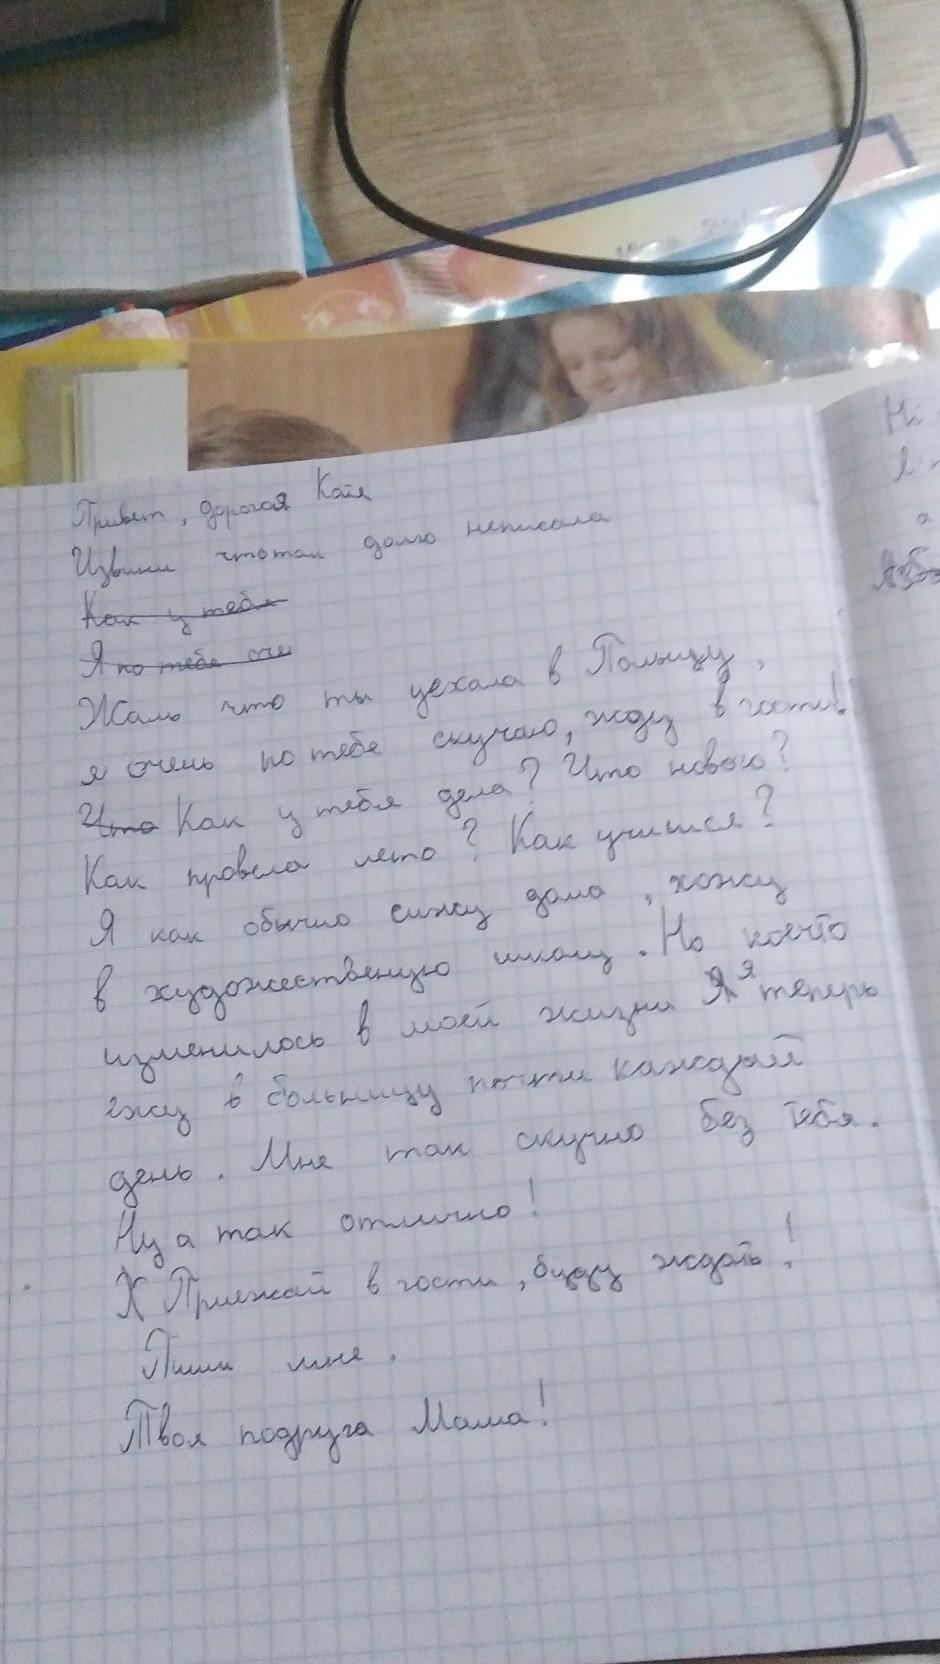 Привет, дорогая Катя
Извини чтотак долго неписала
Как у тебя
Я по тебе оче
Жаль что ты уехала в Польшу,
я очень по тебе скучаю, жду в гости!
Что Как у тебя дела? Что нового?
Как провела лето? Как учишся?
Я как обычно сижу дома, хожу
в художественую школу. Но коечто
изменилось в моей жизни Я я теперь
езжу в больницу почти каждый
день. Мне так скучно без тебя.
Ну а так отлично!
К Приежай в гости, буду ждать!
Пиши мне.
Твоя подруга Маша!
Hi